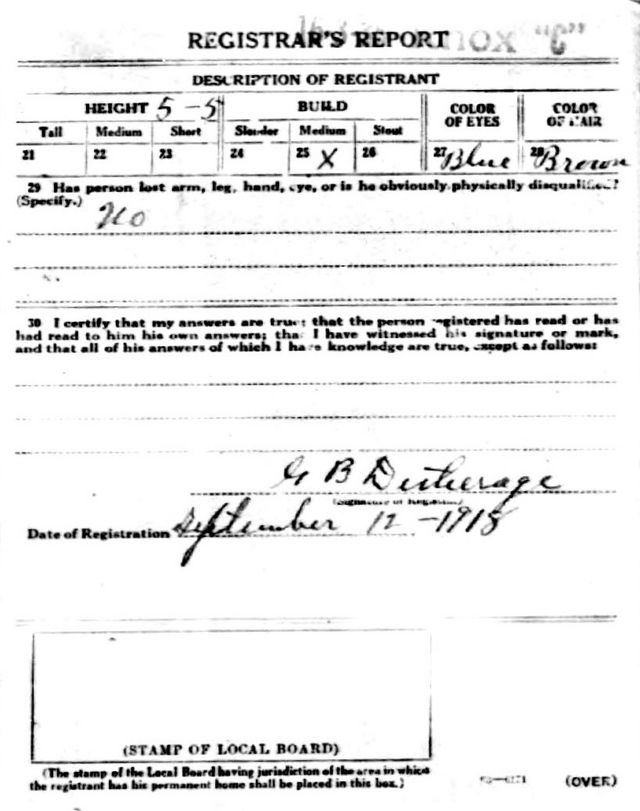 REGISTRAR'S REPORT
"C"
DESCRIPTION OF REGISTRANT
HEIGHT 5-5 BUILD COLOR OF EYES COLOR OF HAIR
Tall Medium Short Slender Medium Stout
21 22 23 24 25 X 26 27 Blue 28 Brown
29 Has person lost arm, leg, hand, eye, or is he obviously physically disqualified?
(Specify.)
No
30 I certify that my answers are true; that the person registered has read or has
had read to him his own answers; that I have witnessed his signature or mark,
and that all of his answers of which I have knowledge are true, except as follows:
G B Deatherage
(Signature of Registrar)
Date of Registration September 12-1918
(STAMP OF LOCAL BOARD)
(The stamp of the Local Board having jurisdiction of the area in which
the registrant has his permanent home shall be placed in this box.)
(OVER)